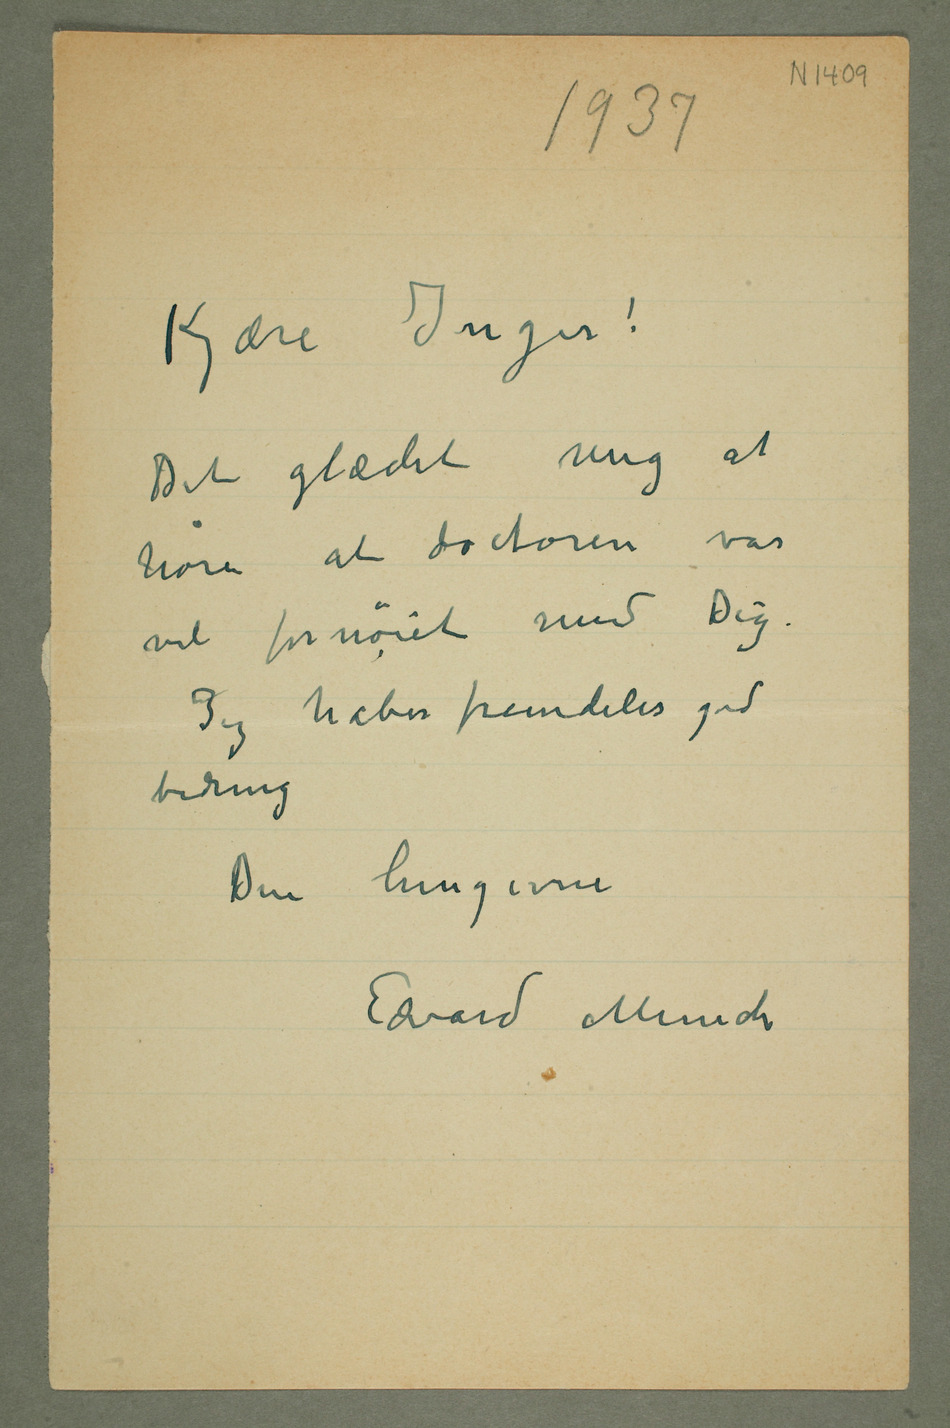 N1409
1937
Kjære Inger!
Det glædet mig at
høre at doctoren var
vel fornøiet med Dig.
Jeg håber fremdeles god
bedring
Din hengivne
Edvard Munch